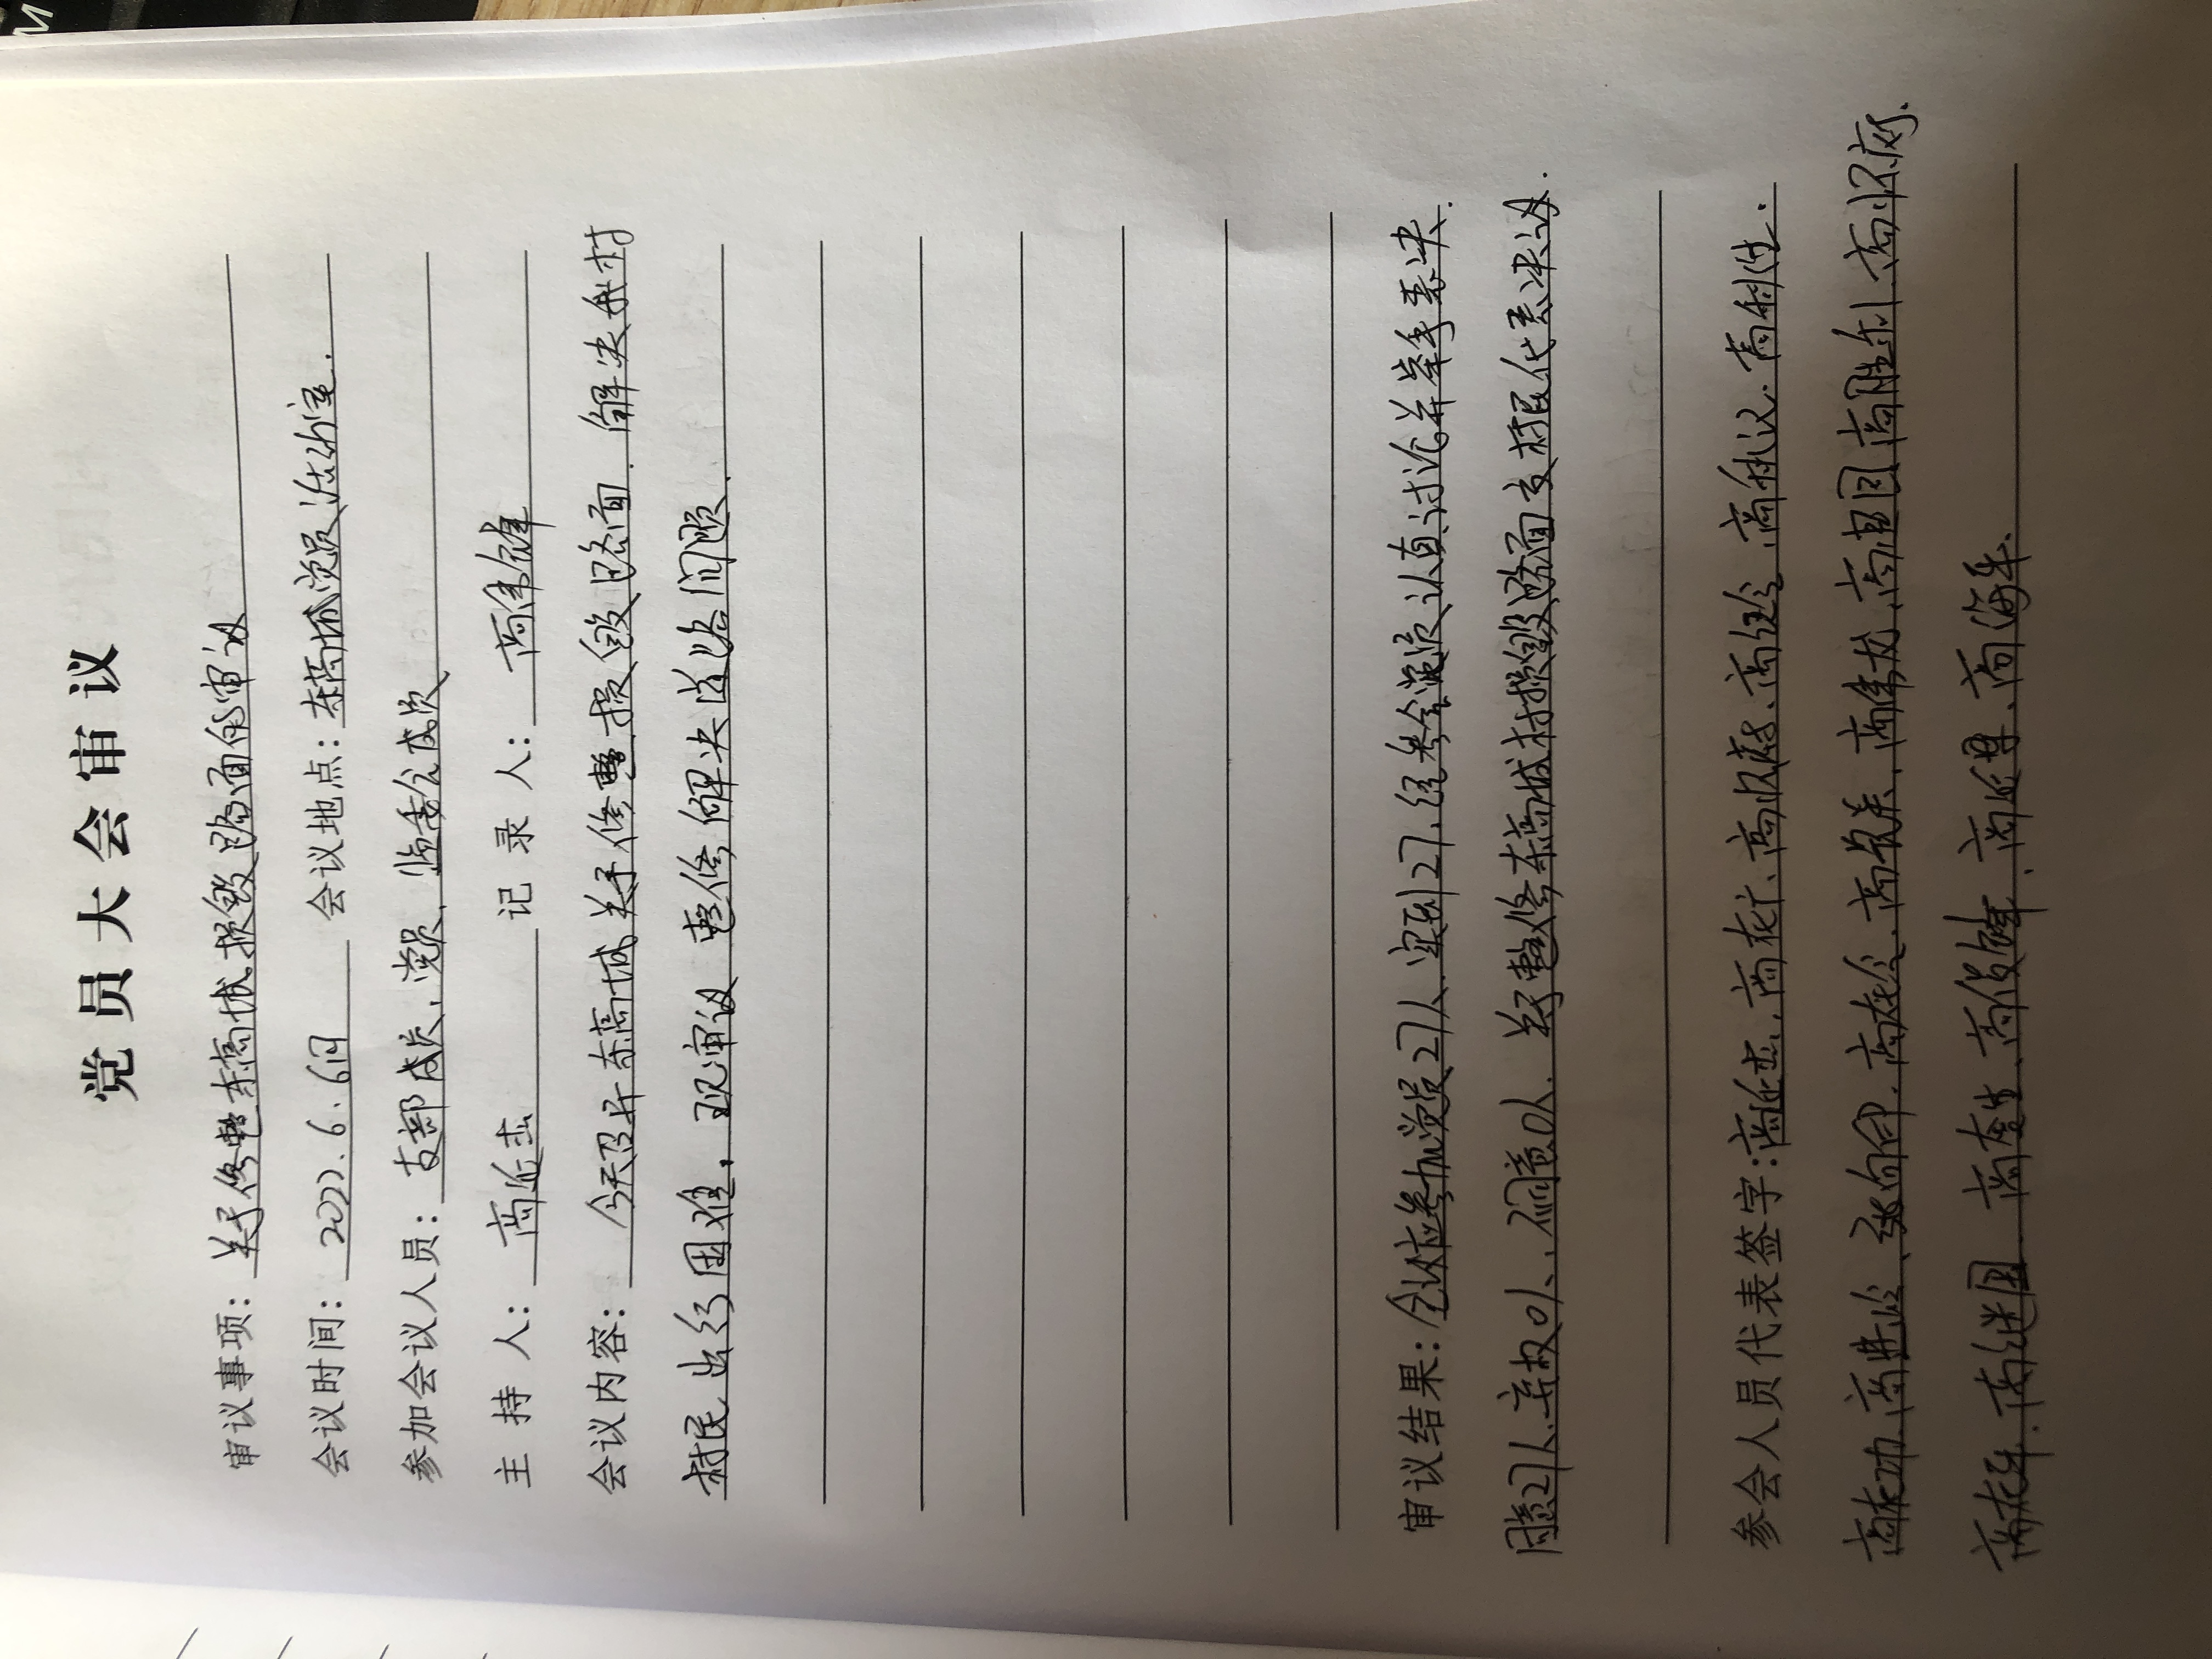 党员大会审议
审议事项: 关于修整东高城损毁路面的审议
会议时间: 2022.6.6日 会议地点: 东高城党员活动室.
参加会议人员: 支部成员, 党员, 监委会成员
主持人: 高延杰 记录人: 高伟锋
会议内容: 今天召开东高城关于修整损毁路面. 解决我村
村民出行困难, 现审议整修解决道路问题.
审议结果: 会议应参加党员27人. 实到27, 经参会党员认真讨论并举手表决.
同意27人. 弃权0人, 不同意0人. 关于整修东高城村损毁路面交村民代表决议.
参会人员代表签字: 高延杰, 高在
高在功. 高伟龙, 高建国 高胜利. 高怀
高在平, 高继国. 高奎生、高俊锋, 高海平.
M